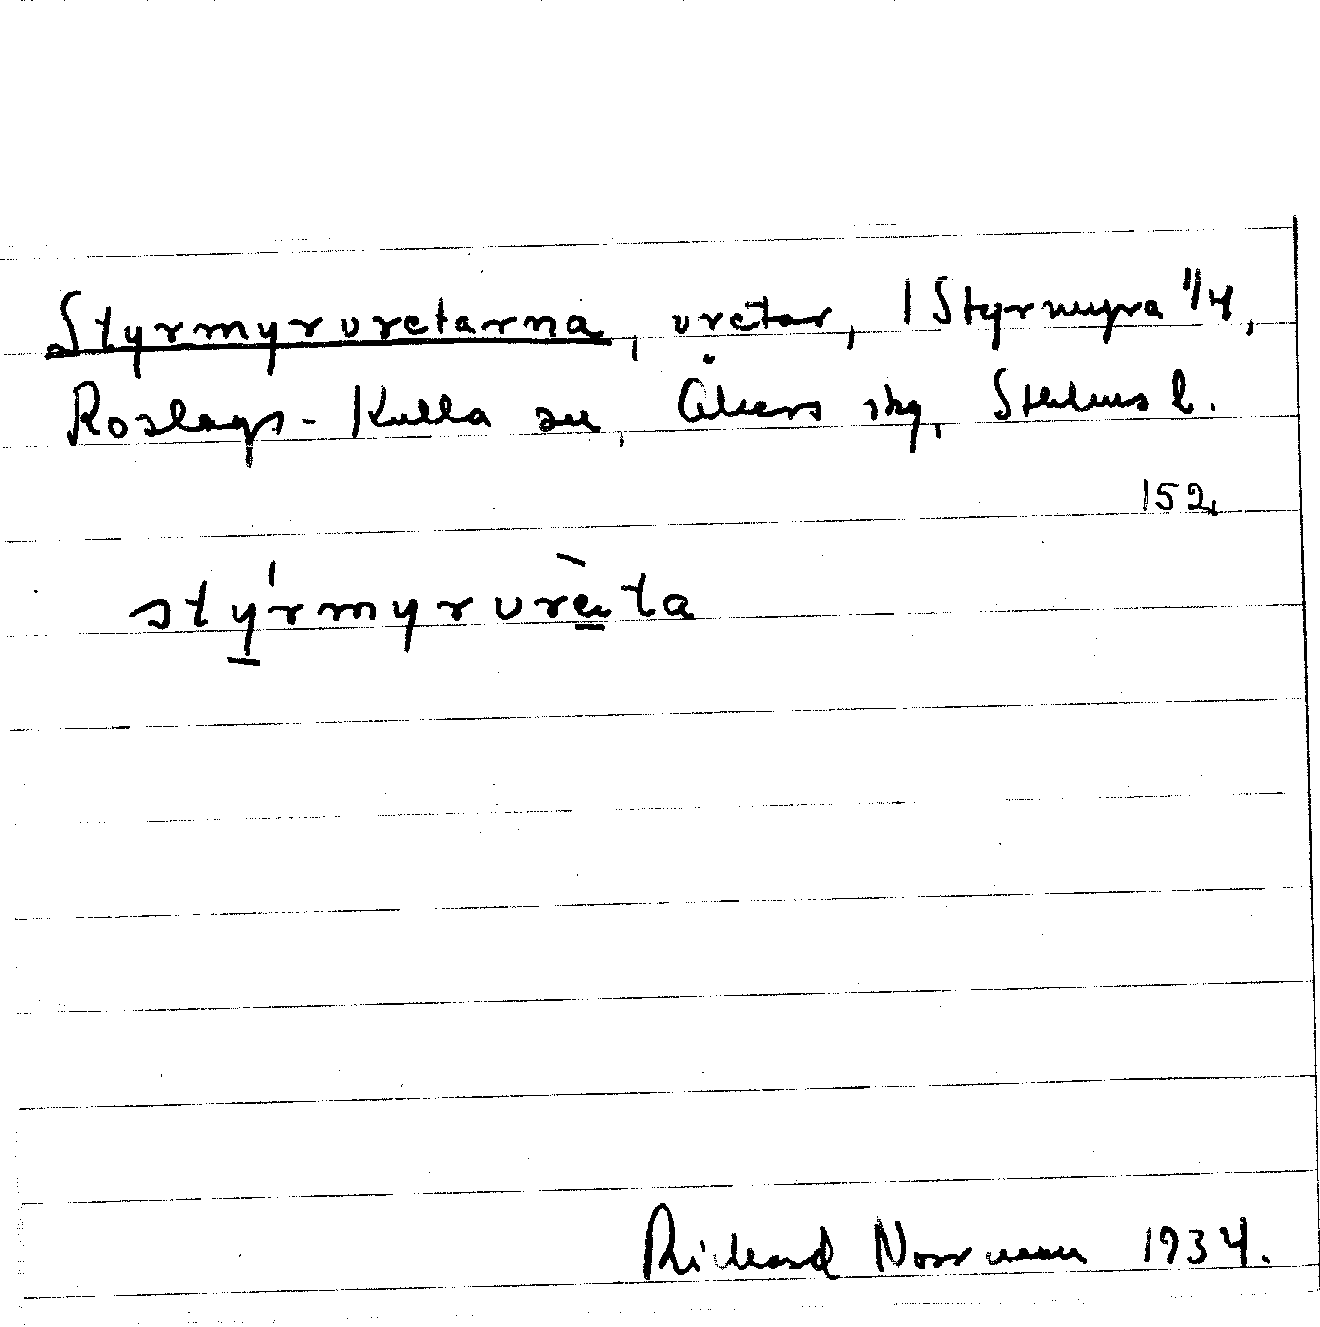 Styrmyrvretarna, vretar, 1 Styrmyra 1/4,
Roslags-Kulla sn, Åkers skg, Sthlms l.
152.
stýrmyrvrèta
Richard Norrman 1934.